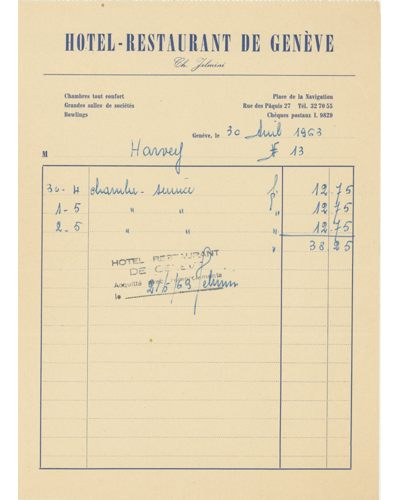 HOTEL-RESTAURANT DE GENÈVE
Ch. Jelmini
Chambres tout confort
Grandes salles de sociétés
Bowlings
Place de la Navigation
Rue des Pâquis 27 Tél. 32 70 55
Chèques postaux I. 9829
Genève, le 30 Avril 1963
M Harvey # 13
30-4 chambre - service fr 12.75
1-5 " " " 12.75
2-5 " " " 12.75
" 38 25
HOTEL RESTAURANT
DE GENÈVE
Acquitté avec remerciements
le 2/5/63 Jelmini